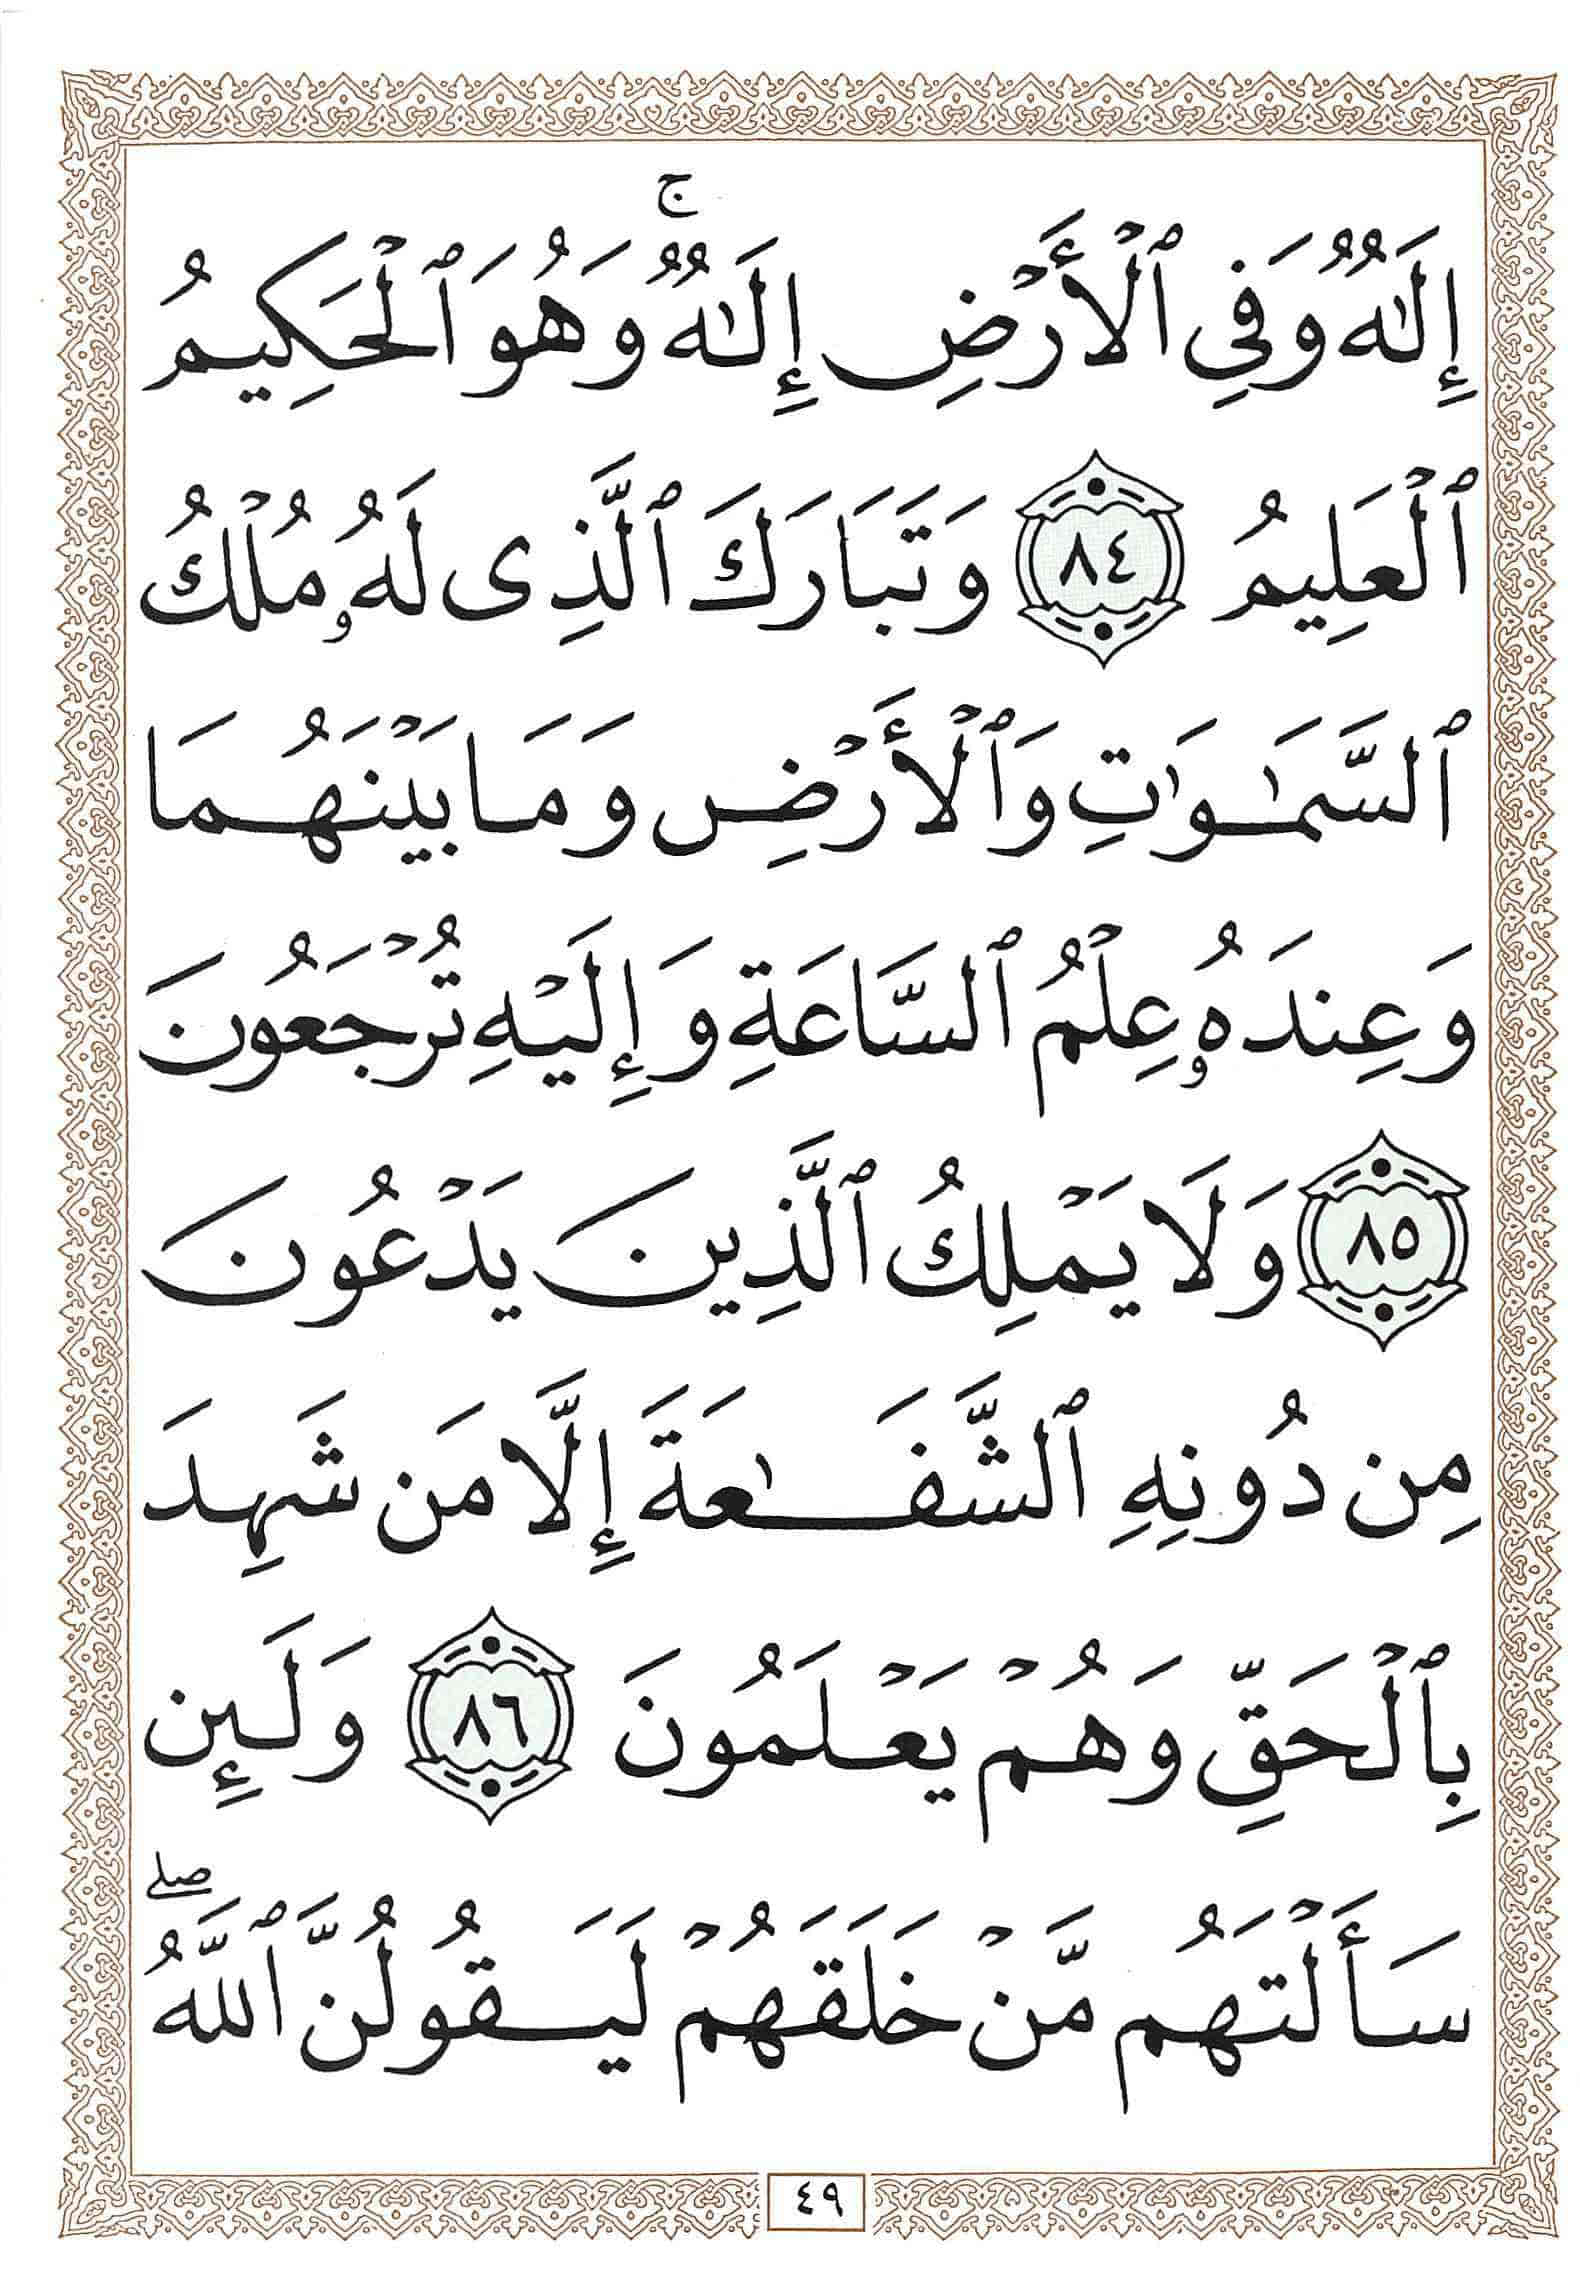 ج
إِلَٰهٌ وَفِي ٱلْأَرْضِ إِلَٰهٌ وَهُوَ ٱلْحَكِيمُ
ٱلْعَلِيمُ ٨٤ وَتَبَارَكَ ٱلَّذِى لَهُۥ مُلْكُ
ٱلسَّمَٰوَٰتِ وَٱلْأَرْضِ وَمَا بَيْنَهُمَا
وَعِندَهُۥ عِلْمُ ٱلسَّاعَةِ وَإِلَيْهِ تُرْجَعُونَ
٨٥ وَلَا يَمْلِكُ ٱلَّذِينَ يَدْعُونَ
مِن دُونِهِ ٱلشَّفَٰعَةَ إِلَّا مَن شَهِدَ
بِٱلْحَقِّ وَهُمْ يَعْلَمُونَ ٨٦ وَلَئِن
صلے
سَأَلْتَهُم مَّنْ خَلَقَهُمْ لَيَقُولُنَّ ٱللَّهُ
٤٩